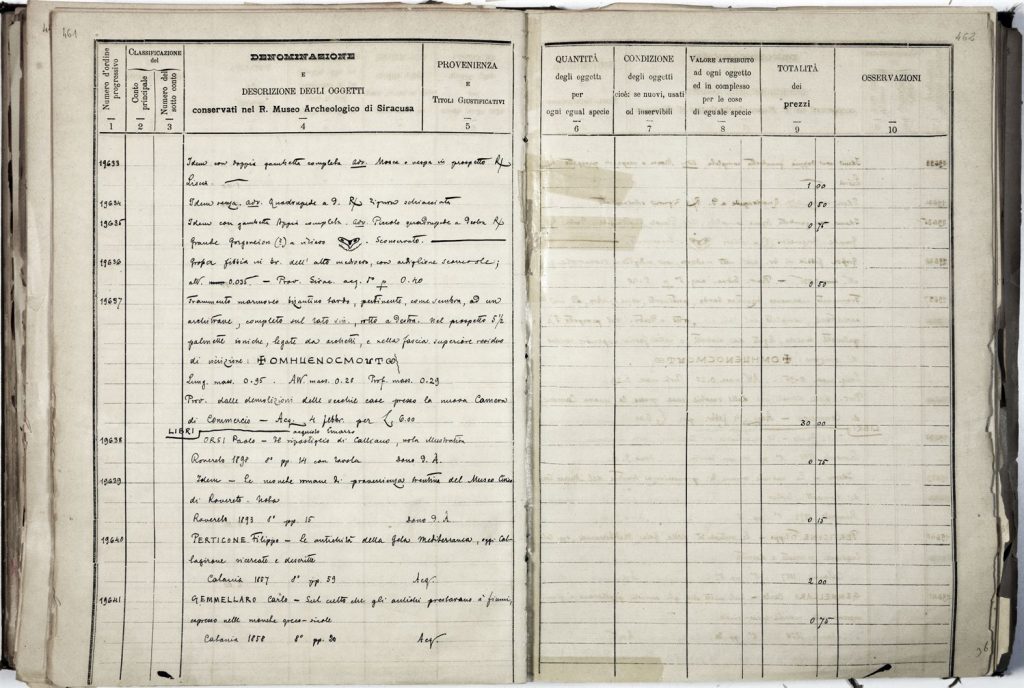 461
Numero d'ordine progressivo
CLASSIFICAZIONE del
Conto principale
Numero del sotto conto
DENOMINAZIONE
E
DESCRIZIONE DEGLI OGGETTI
conservati nel R. Museo Archeologico di Siracusa
PROVENIENZA
E
TITOLI GIUSTIFICATIVI
1 2 3 4 5
19633 Idem con doppia gambetta completa. adv. Mosca o vespa in prospetto Rx
Liscio.
19634 Idem senza. adv. Quadrupede a d. Rx Figura schiacciata
19635 Idem con gambetta doppia completa. adv. Piccolo quadrupede a destra Rx
Grande Gorgoneion (?) a rilievo . Sconservato.
19636 Grossa fibbia in br. dell' alto medioevo, con ardiglione
alt. 0.035. — Prov. Sirac. acq. 5° p 0.40
19637 Frammento marmoreo bizantino tardo, pertinente, come sembra, ad un
architrave, completo sul lato sin., rotto a destra. Nel prospetto 5 1/2
palmette ioniche, legate da archetti, e nella fascia superiore residuo
di iscrizione: ✠ OMHUENOCMOUTω
Lung. mass. 0.95. Alt. mass. 0.28 Prof. mass. 0.29
Prov. dalle demolizioni delle vecchie case presso la nuova Camera
di Commercio — Acq. 4 febbr. per £ 6.00
LIBRI
19638 ORSI Paolo — Il ripostiglio di Calliano, nota illustrativa
Rovereto 1898 8° pp. 14 con tavola dono d. A.
19639 Idem — Le monete romane di provenienza trentina del Museo Civico
di Rovereto. Nota
Rovereto 1893 8° pp. 15 dono d. A.
19640 PERTICONE Filippo — Le antichità della Gela Mediterranea, oggi Cal-
tagirone ricercate e descritte
Catania 1857 8° pp. 59 Acq.
19641 GEMMELLARO Carlo — Sul culto che gli antichi prestavano a' fiumi,
espresso nelle monete greco-sicole
Catania 1858 8° pp. 20 Acq.
462
QUANTITÀ
degli oggetti
per
ogni egual specie
CONDIZIONE
degli oggetti
cioè: se nuovi, usati
od inservibili
VALORE ATTRIBUITO
ad ogni oggetto
ed in complesso
per le cose
di eguale specie
TOTALITÀ
dei
prezzi
OSSERVAZIONI
6 7 8 9 10
1 00
0 50
0 75
0 50
20 00
0 75
0 15
2 00
0 75